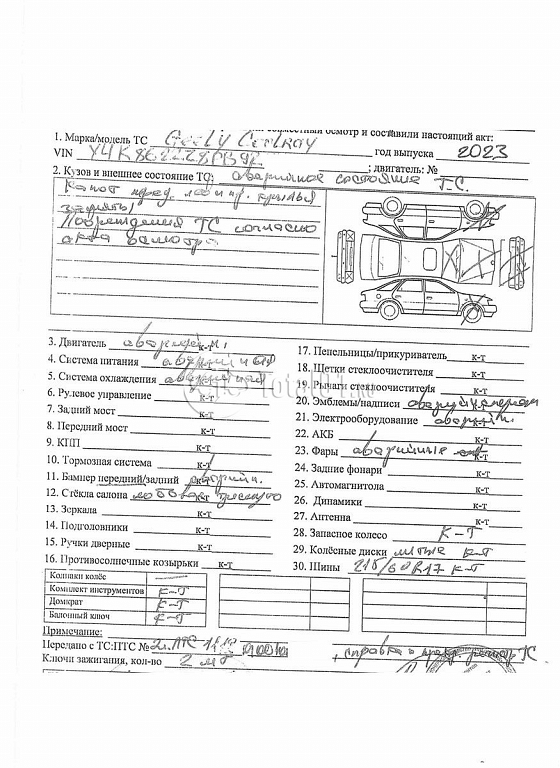 совместный осмотр и составили настоящий акт:
1. Марка/модель ТС Geely Coolray
VIN год выпуска 2023
2. Кузов и внешнее состояние ТС: аварийное состояние ТС. ; двигатель: №
Капот перед. лев и пр. крылья
замяты
Повреждения ТС согласно
акта осмотра
3. Двигатель к-т
4. Система питания
5. Система охлаждения
6. Рулевое управление к-т
7. Задний мост к-т
8. Передний мост к-т
9. КПП к-т
10. Тормозная система к-т
11. Бампер передний/задний
12. Стёкла салона лобовое треснуто
13. Зеркала к-т
14. Подголовники к-т
15. Ручки дверные к-т
16. Противосолнечные козырьки к-т
17. Пепельницы/прикуриватель к-т
18. Щетки стеклоочистителя к-т
19. Рычаги стеклоочистителя к-т
20. Эмблемы/надписи
21. Электрооборудование
22. АКБ к-т
23. Фары аварийные
24. Задние фонари к-т
25. Автомагнитола к-т
26. Динамики к-т
27. Антенна к-т
28. Запасное колесо К-Т
29. Колёсные диски литые к-т
30. Шины 215/60R17 к-т
Колпаки колёс —
Комплект инструментов К-Т
Домкрат К-Т
Балонный ключ К-Т
Примечание:
Передано с ТС:ПТС № + справка о прекр. регистр ТС
Ключи зажигания, кол-во 2 шт